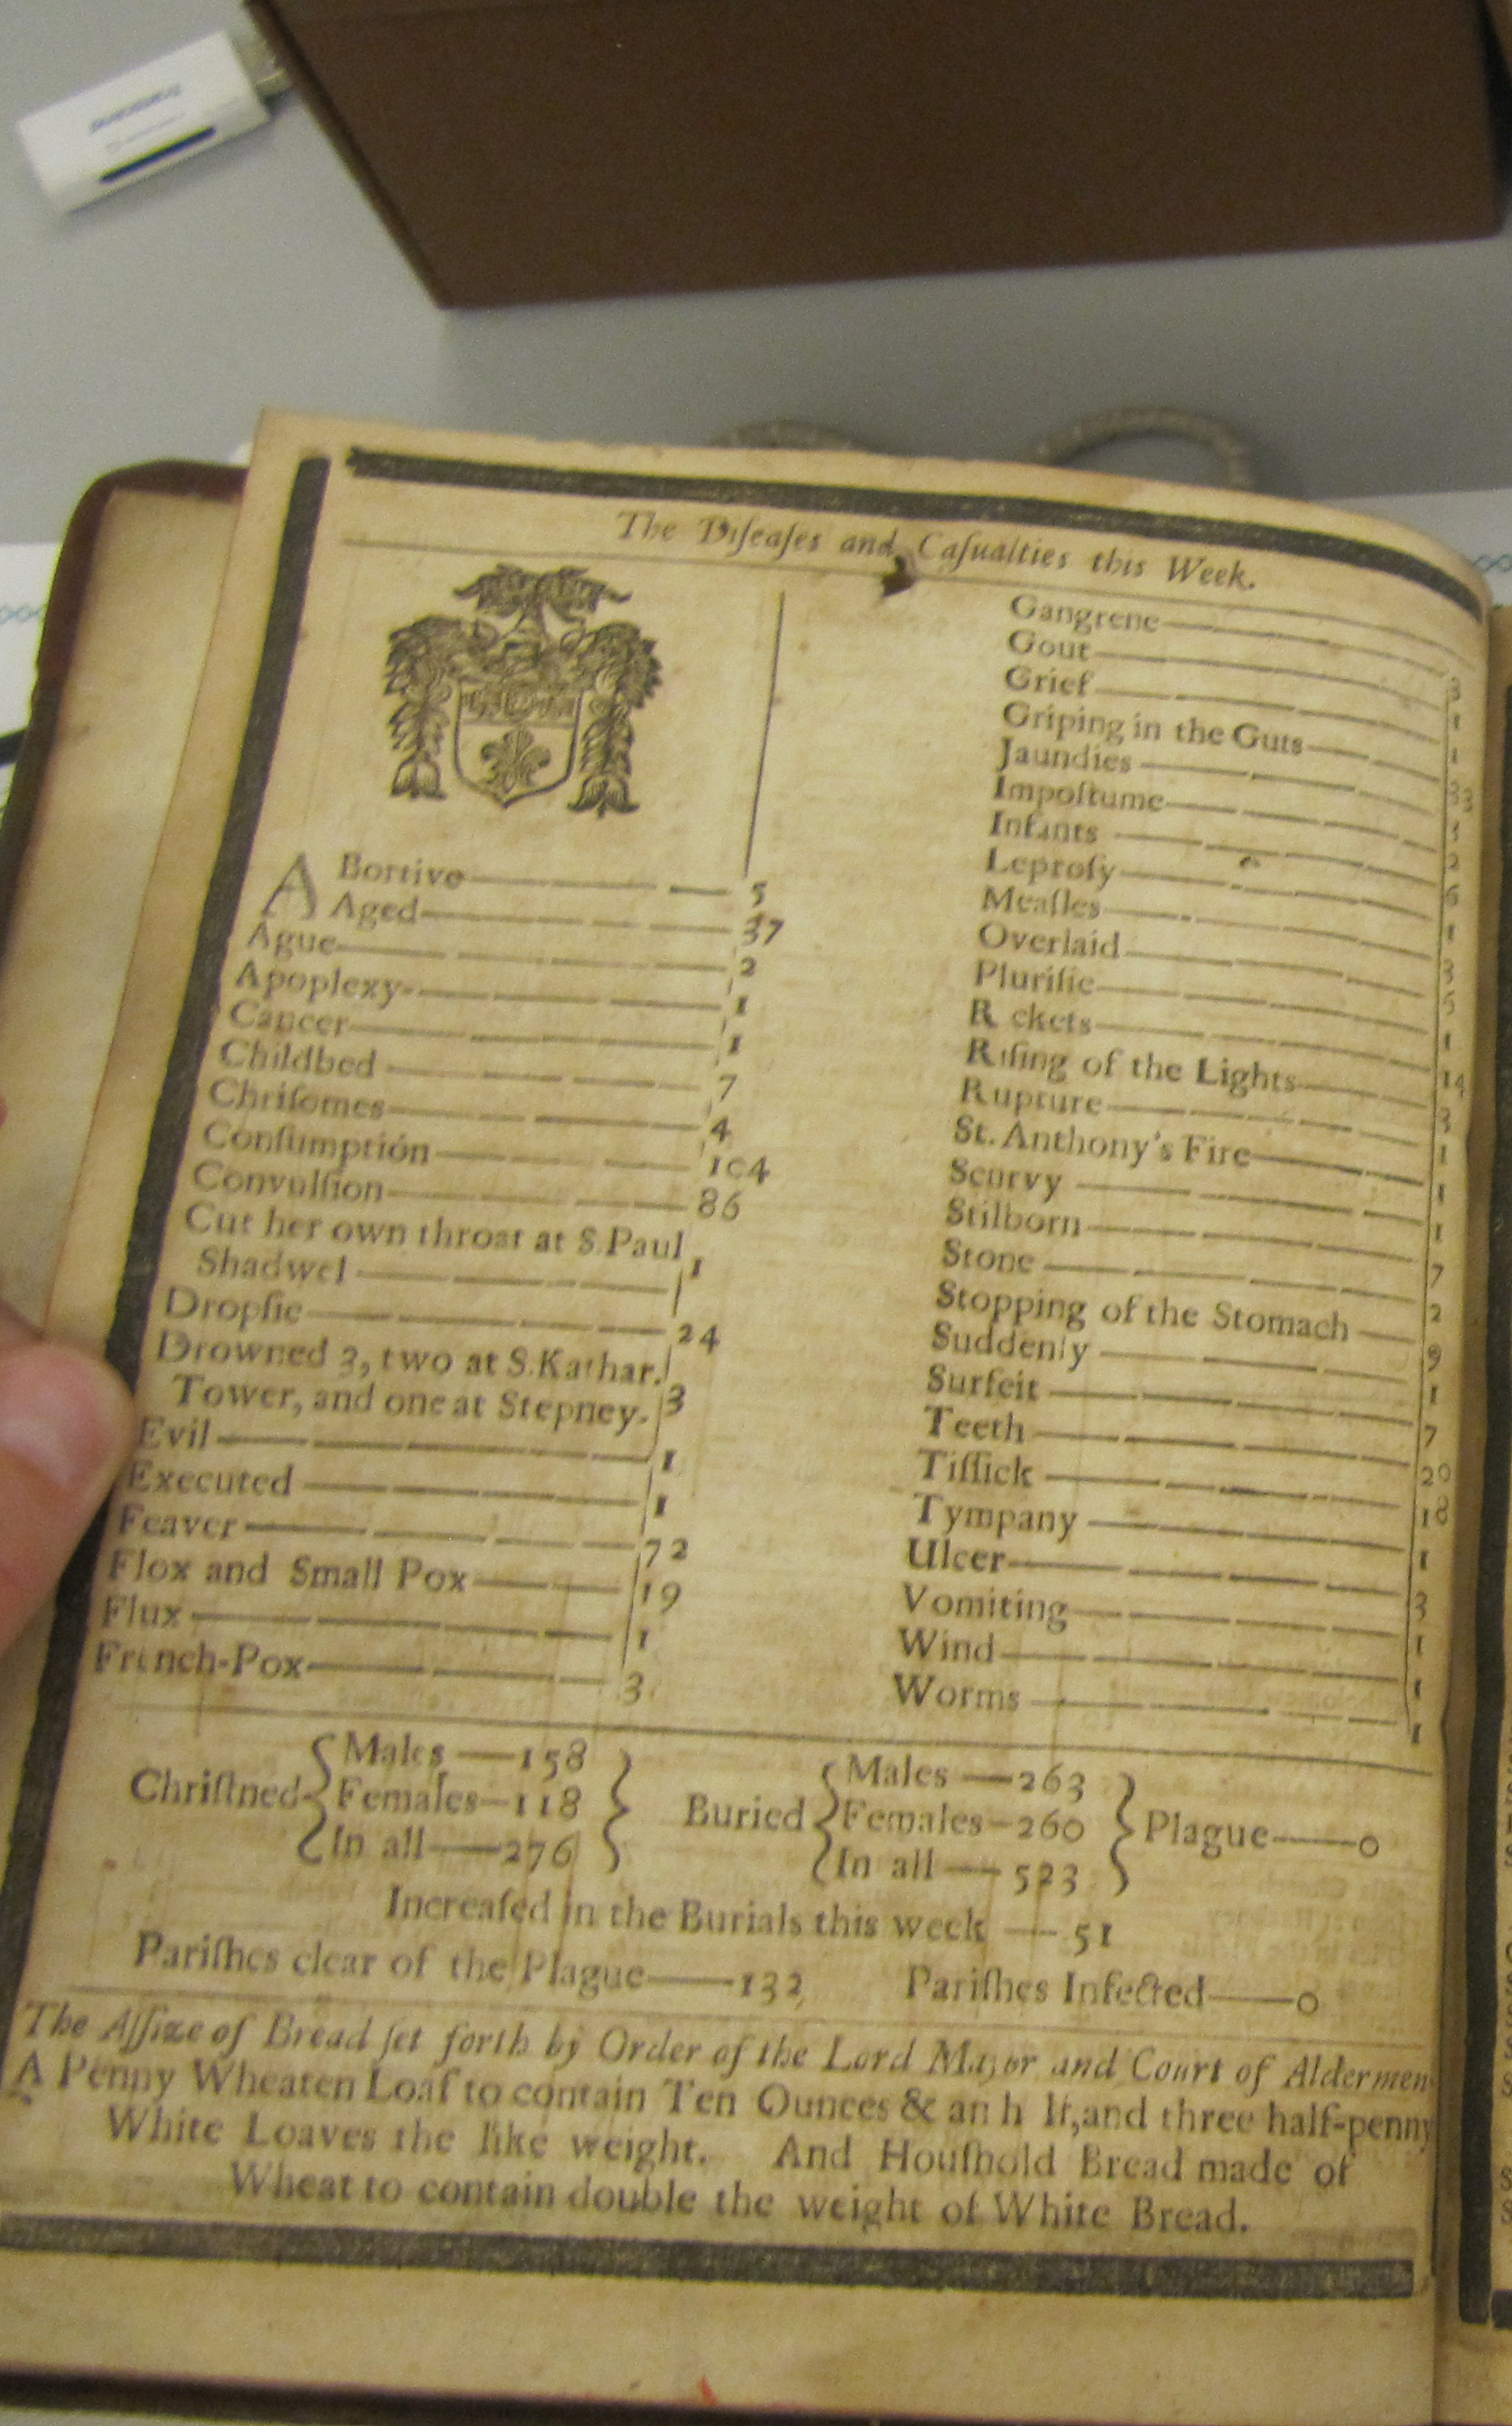 The Diſeaſes and Caſualties this Week.
ABortive 5
Aged 37
Ague 2
Apoplexy 1
Cancer 1
Childbed 7
Chriſomes 4
Conſumption 104
Convulſion 86
Cut her own throat at S. Paul
Shadwel 1
Dropſie 24
Drowned 3, two at S. Kathar.
Tower, and one at Stepney. 3
Evil 1
Executed 1
Feaver 72
Flox and Small Pox 19
Flux 1
French-Pox 3
Gangrene 3
Gout 1
Grief 1
Griping in the Guts 33
Jaundies 3
Impoſtume 2
Infants 6
Leproſy 1
Meaſles 3
Overlaid 5
Pluriſie 1
R ckets 14
Riſing of the Lights 3
Rupture 1
St. Anthony's Fire 1
Scurvy 1
Stilborn 7
Stone 2
Stopping of the Stomach 9
Suddenly 1
Surfeit 7
Teeth 20
Tiſſick 18
Tympany 1
Ulcer 3
Vomiting 1
Wind 1
Worms 1
Chriſtned { Males — 158
Females — 118
In all — 276 }
Buried { Males — 263
Females — 260
In all — 523 } Plague — 0
Increaſed in the Burials this week — 51
Pariſhes clear of the Plague — 132 Pariſhes Infected — 0
The Aſſize of Bread ſet forth by Order of the Lord Major and Court of Aldermen
A Penny Wheaten Loaf to contain Ten Ounces & an h lf, and three half-penny
White Loaves the like weight. And Houſhold Bread made of
Wheat to contain double the weight of White Bread.